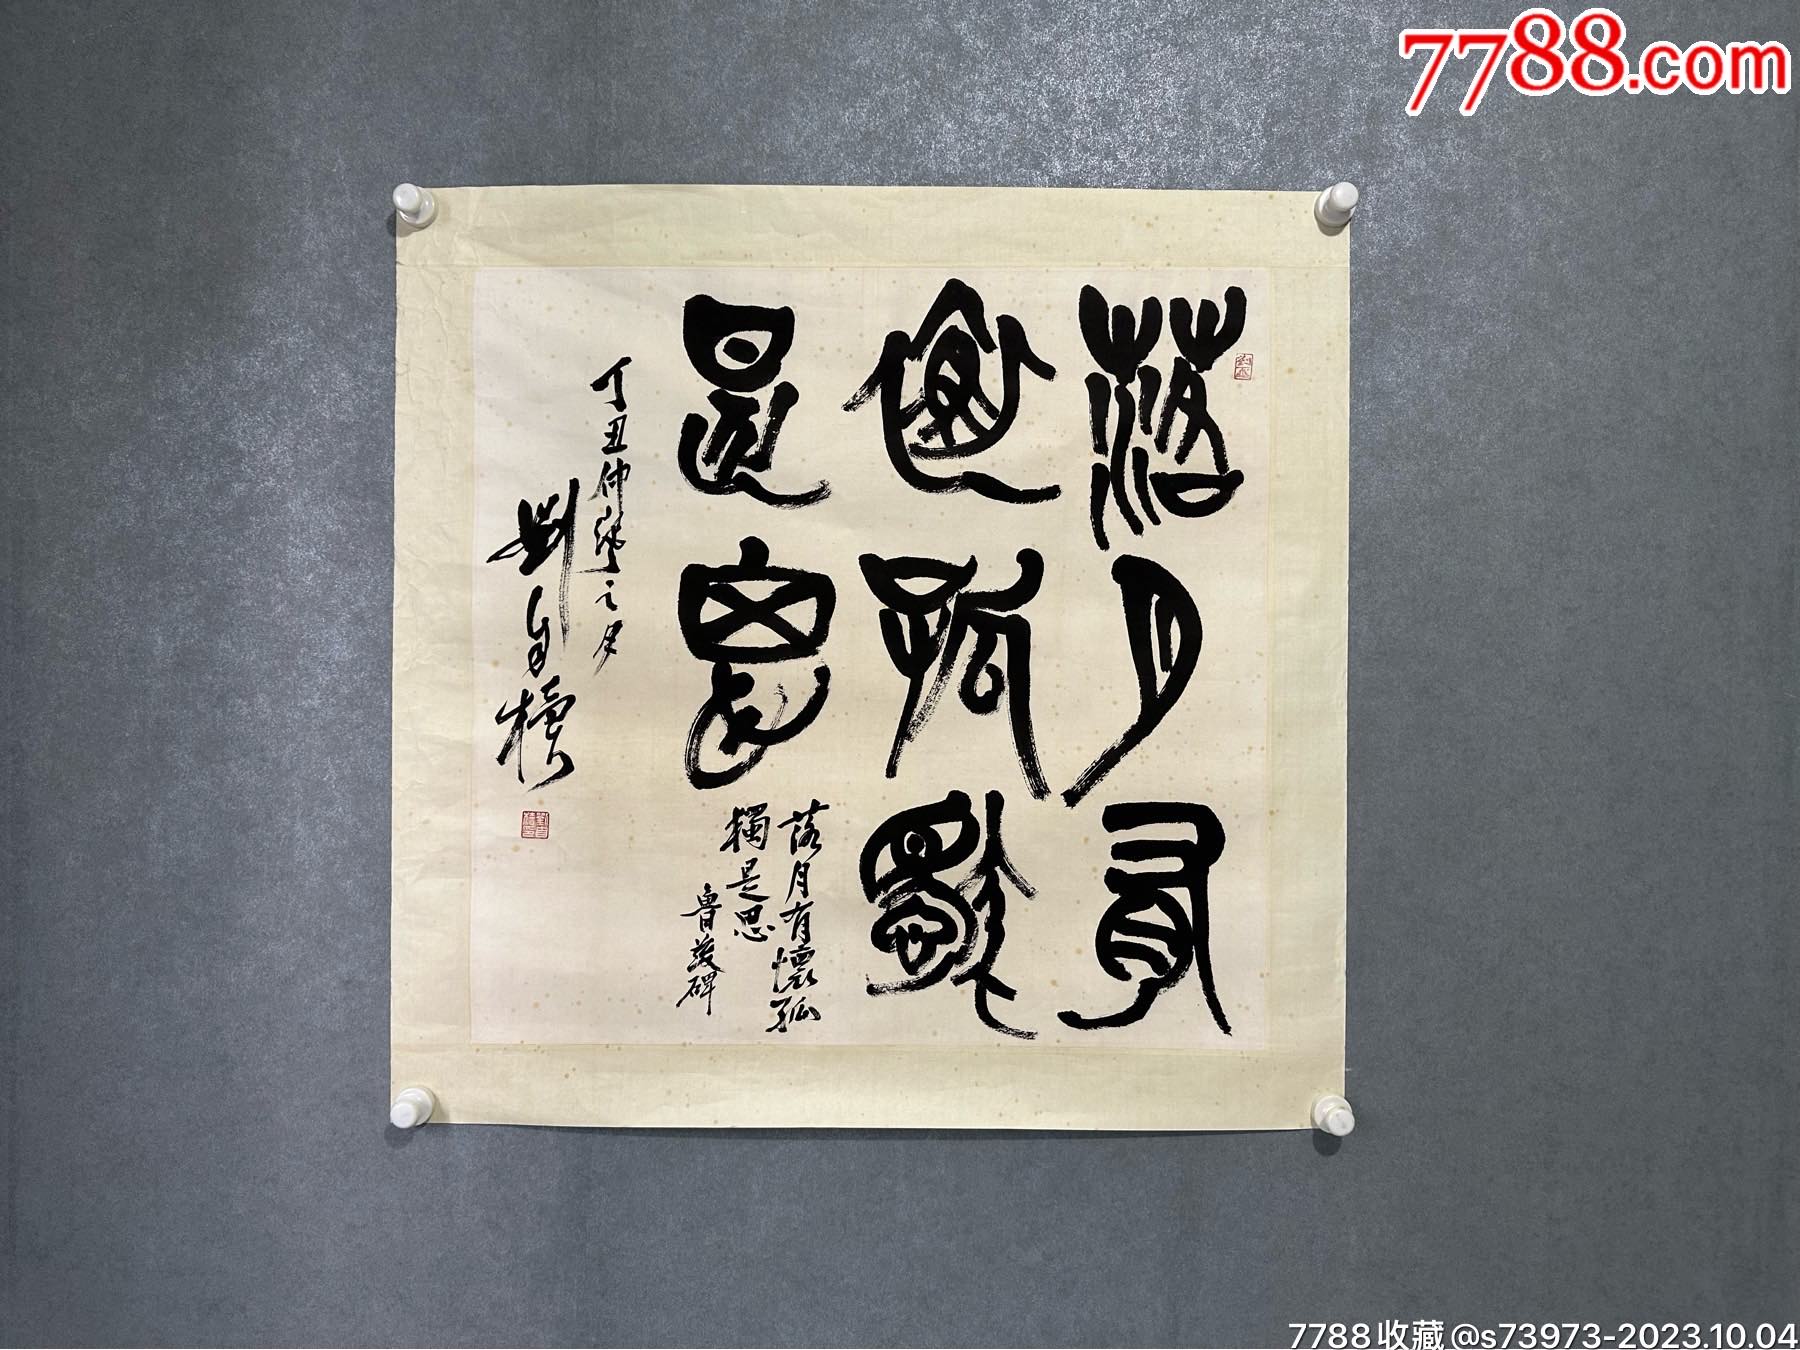 7788.com
落月有
懷孤獨
是思
落月有懷孤
獨是思
魯
碑
丁丑仲秋之月
劉自櫝
7788收藏@s73973-2023.10.04